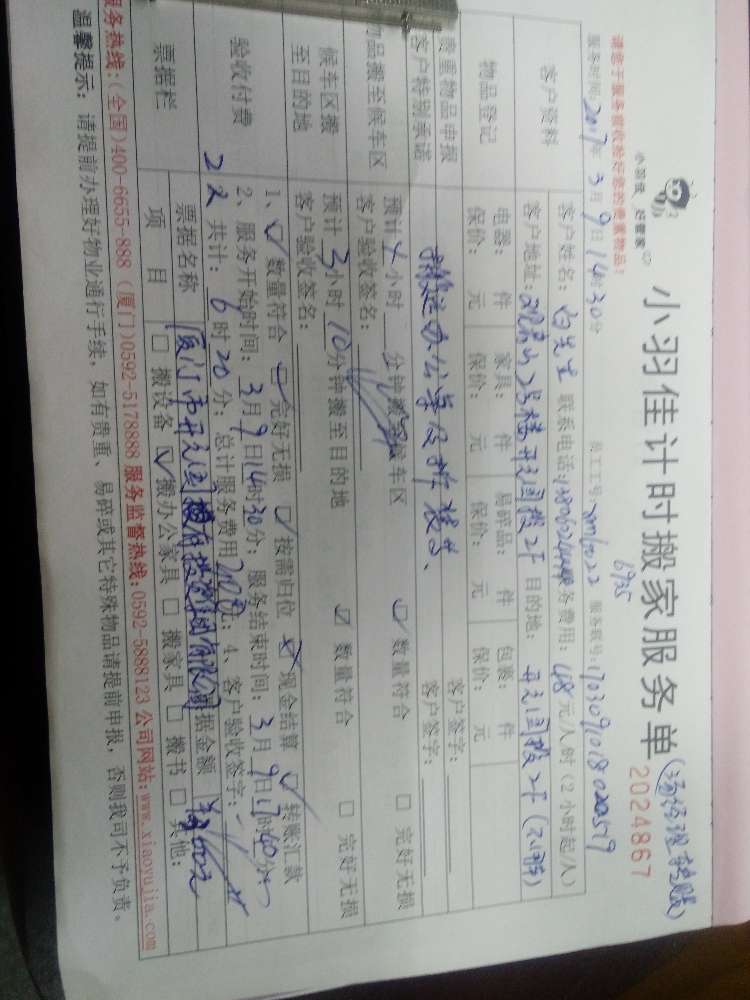 小羽佳计时搬家服务单
2024867
小羽佳 好管家
请您于服务前收拾好您的贵重物品!
服务时间: 2017年 3月 9日 14时30分 员工工号: 服务账号:
6935
客户资料
客户姓名: 白先生 联系电话: 服务费用: 48元/人时(2小时起/人)
客户地址: 观音山2号楼 2F 目的地: 2F
物品登记
电器: 件 家具: 件 易碎品: 件 包裹: 件
保价: 元 保价: 元 保价: 元 保价: 元
贵重物品申报 客户签字:
客户特别承诺 搬运办公桌及拆装等、 客户签字:
物品搬至候车区
预计 小时 分钟搬至候车区 ☑数量符合 □完好无损
客户验收签名:
候车区搬至目的地
预计 3小时 10分钟搬至目的地 ☑数量符合 □完好无损
客户验收签名:
验收付费
1、☑数量符合 ☑完好无损 ☑按需归位 现金结算 ☑转账汇款
2、服务开始时间: 3月 9日14时30分; 服务结束时间: 3月 9日17时40分
共计: 6时20分; 总计服务费用 元; 4、客户验收签字:
票据栏
票据名称 票据金额
项目 □搬设备 ☑搬办公家具 □搬家具 □搬书 □其他:
服务热线:(全国)400-6655-888 (厦门)0592-5178888 服务监督热线:0592-5888123 公司网站:www.xiaoyujia.com
温馨提示: 请提前办理好物业通行手续, 如有贵重、易碎或其它特殊物品请提前申报, 否则我司不予负责。